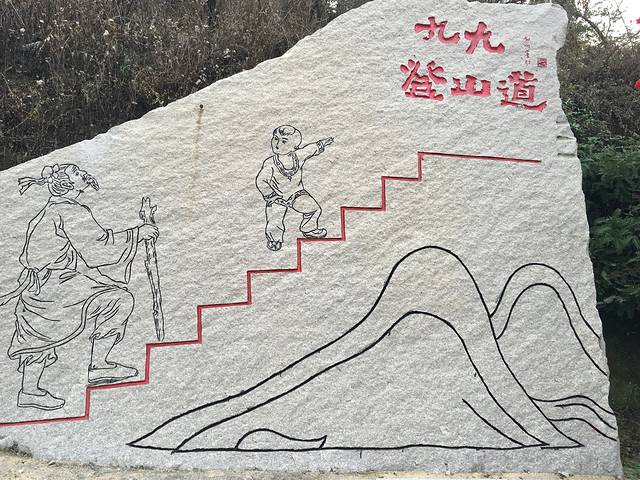 九九
登山道